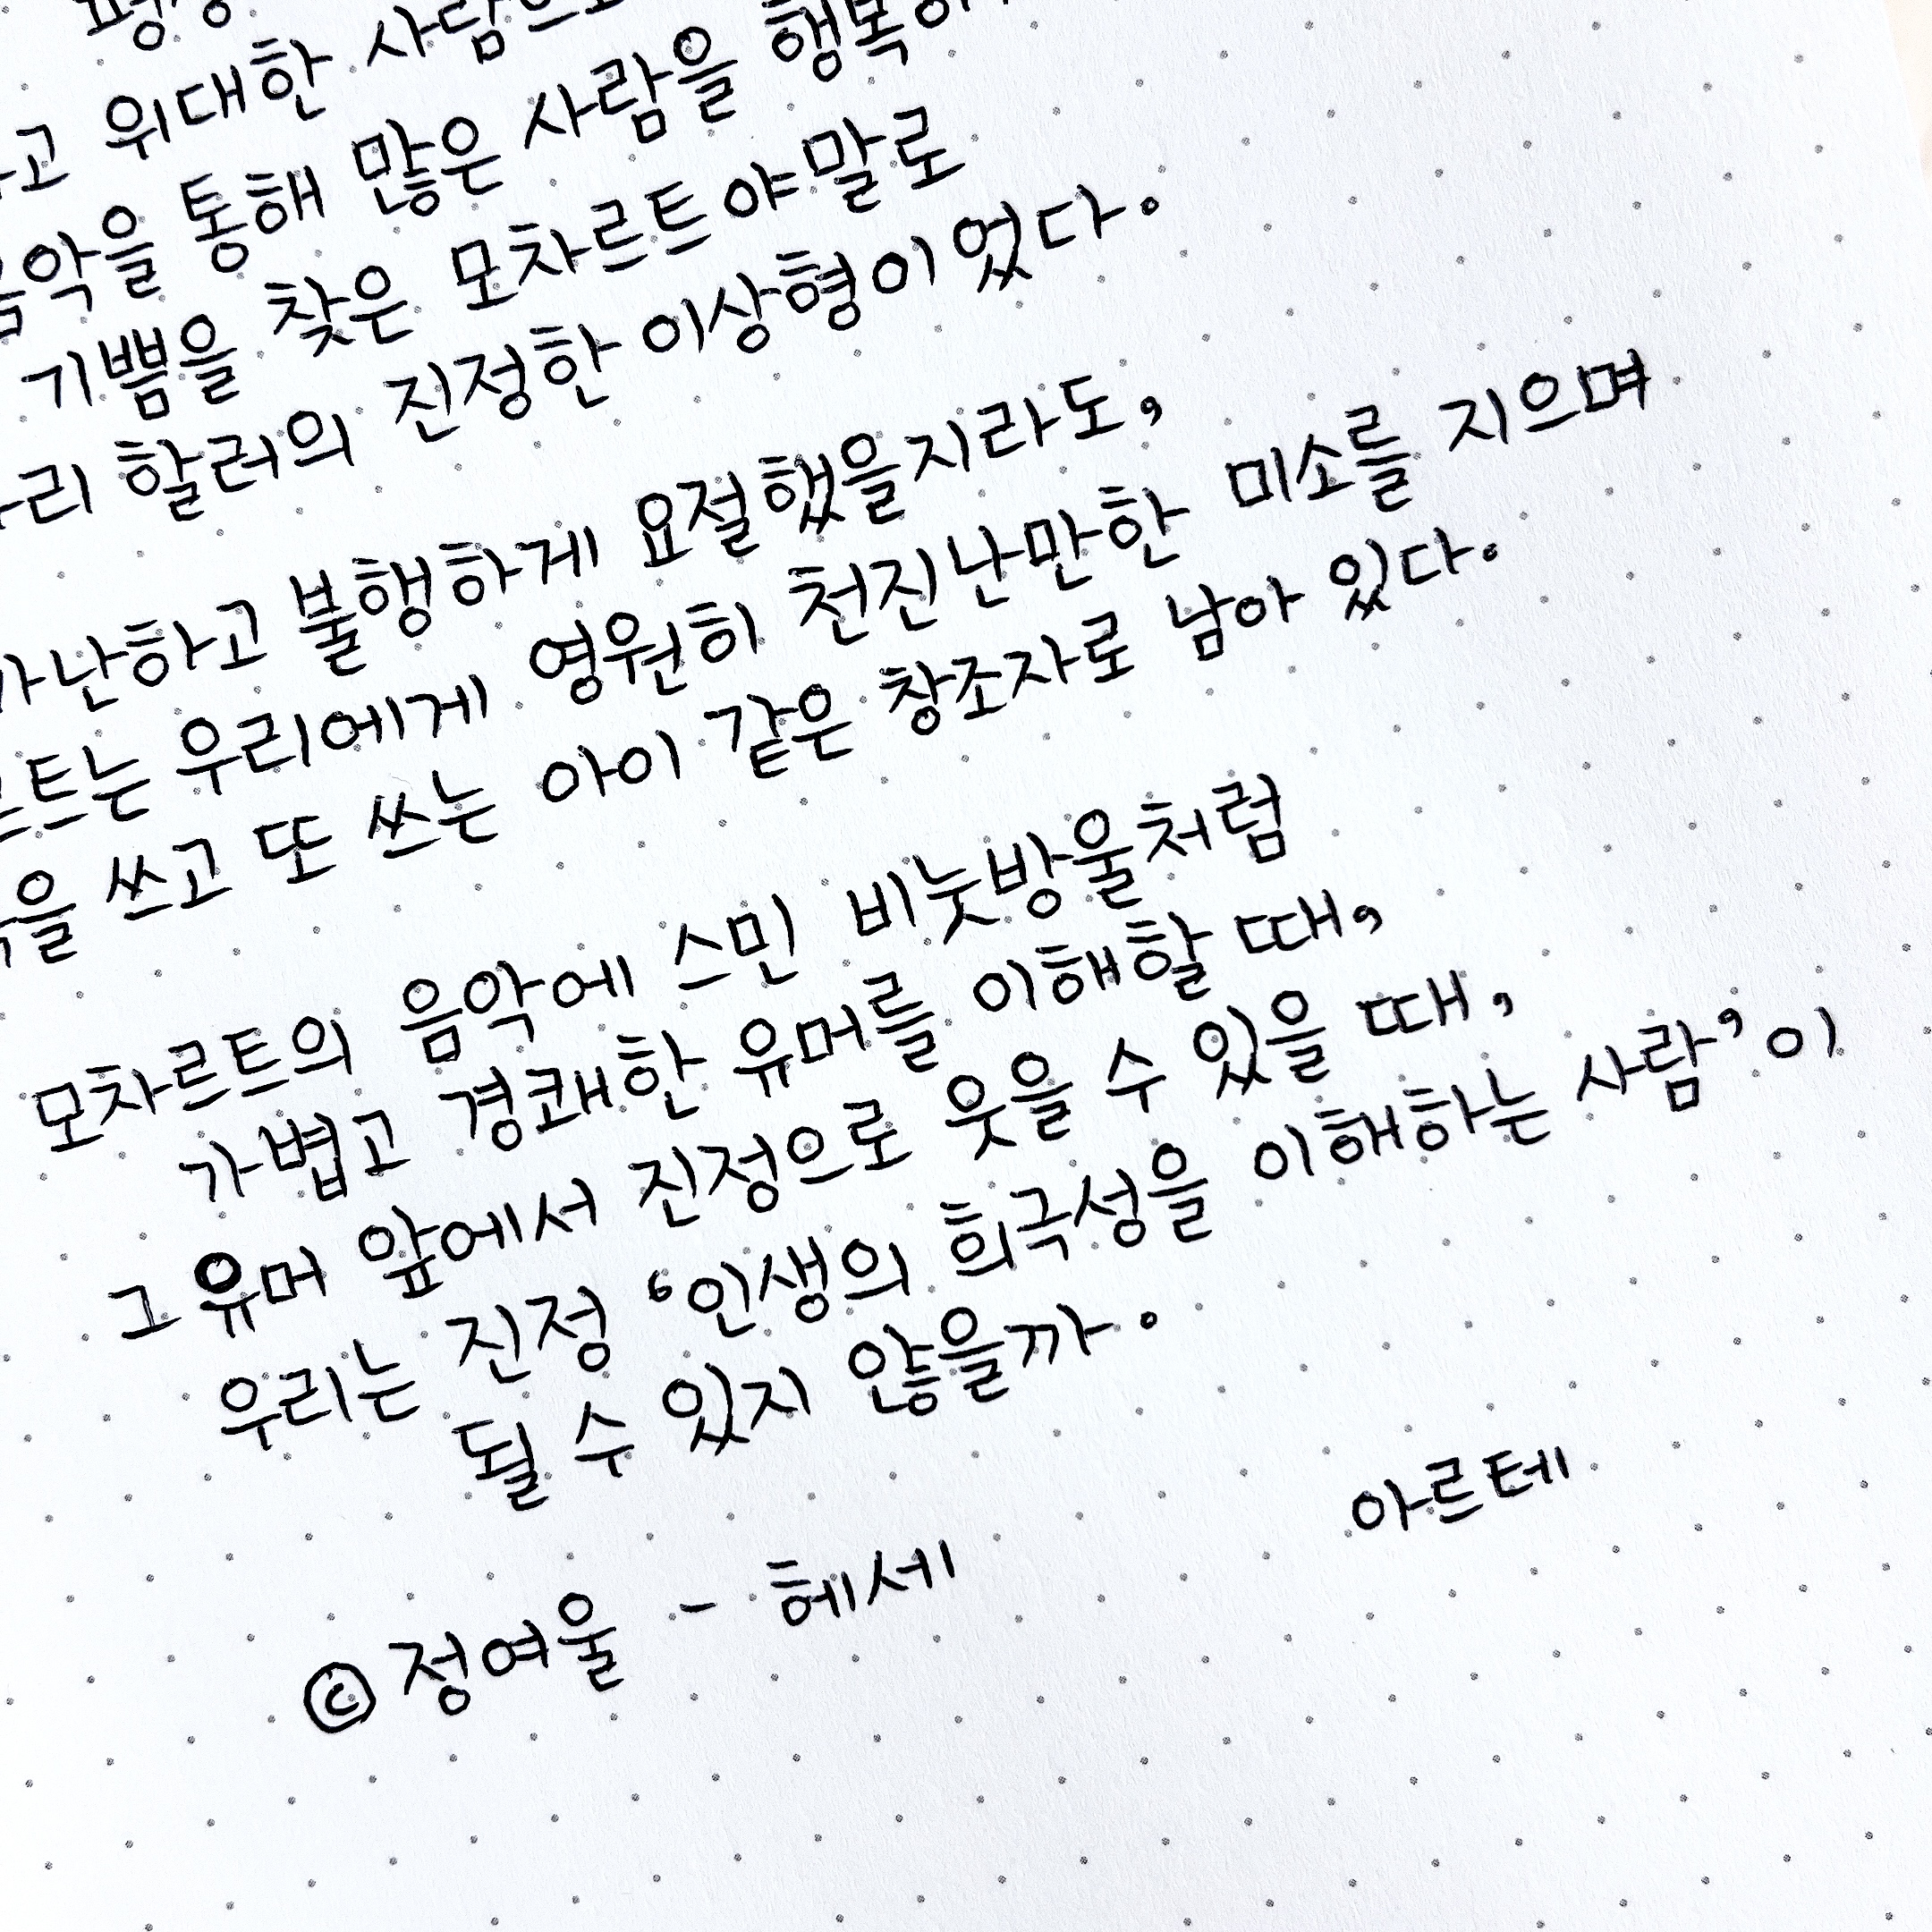 위대한 사람으로
통해 많은 사람을
기쁨을 찾은 모차르트야말로
할러의 진정한 이상형이었다.
가난하고 불행하게 요절했을지라도,
우리에게 영원히 천진난만한 미소를 지으며
쓰고 또 쓰는 아이 같은 창조자로 남아 있다.
모차르트의 음악에 스민 비눗방울처럼
가볍고 경쾌한 유머를 이해할 때,
그 유머 앞에서 진정으로 웃을 수 있을 때,
우리는 진정 ‘인생의 희극성을 이해하는 사람’이
될 수 있지 않을까.
아르테
©정여울 - 헤세